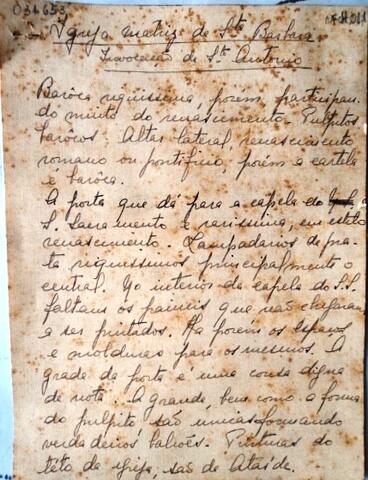 031653
Igreja matriz de Sta Barbara
Invocação de Sto Antonio
Barôca riquissima, porem, participan
do muito do renascimento. Pulpitos
barôcos. Altar lateral, renascimento
romano ou pontificio, porém a cartela
é barôca.
A porta que dá para a capela do a
S. Sacramento é rarissima, em estilo
renascimento. Lampadarios de pra-
ta riquissimos principalmente o
central. No interior da capela do S.S.
faltam os paineis que não chegaram
a ser pintados. Ha porem os espaços
e molduras para os mesmos. A
grade da porta é uma cousa digna
de nota. A grande, bem como a forma
do pulpito são unicas formando
verdadeiros balcões. Pinturas do
této da Igreja, são de Ataíde.